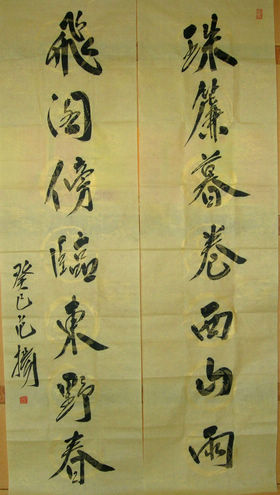 珠簾暮卷西山雨
飛閣傍臨東野春
癸巳范